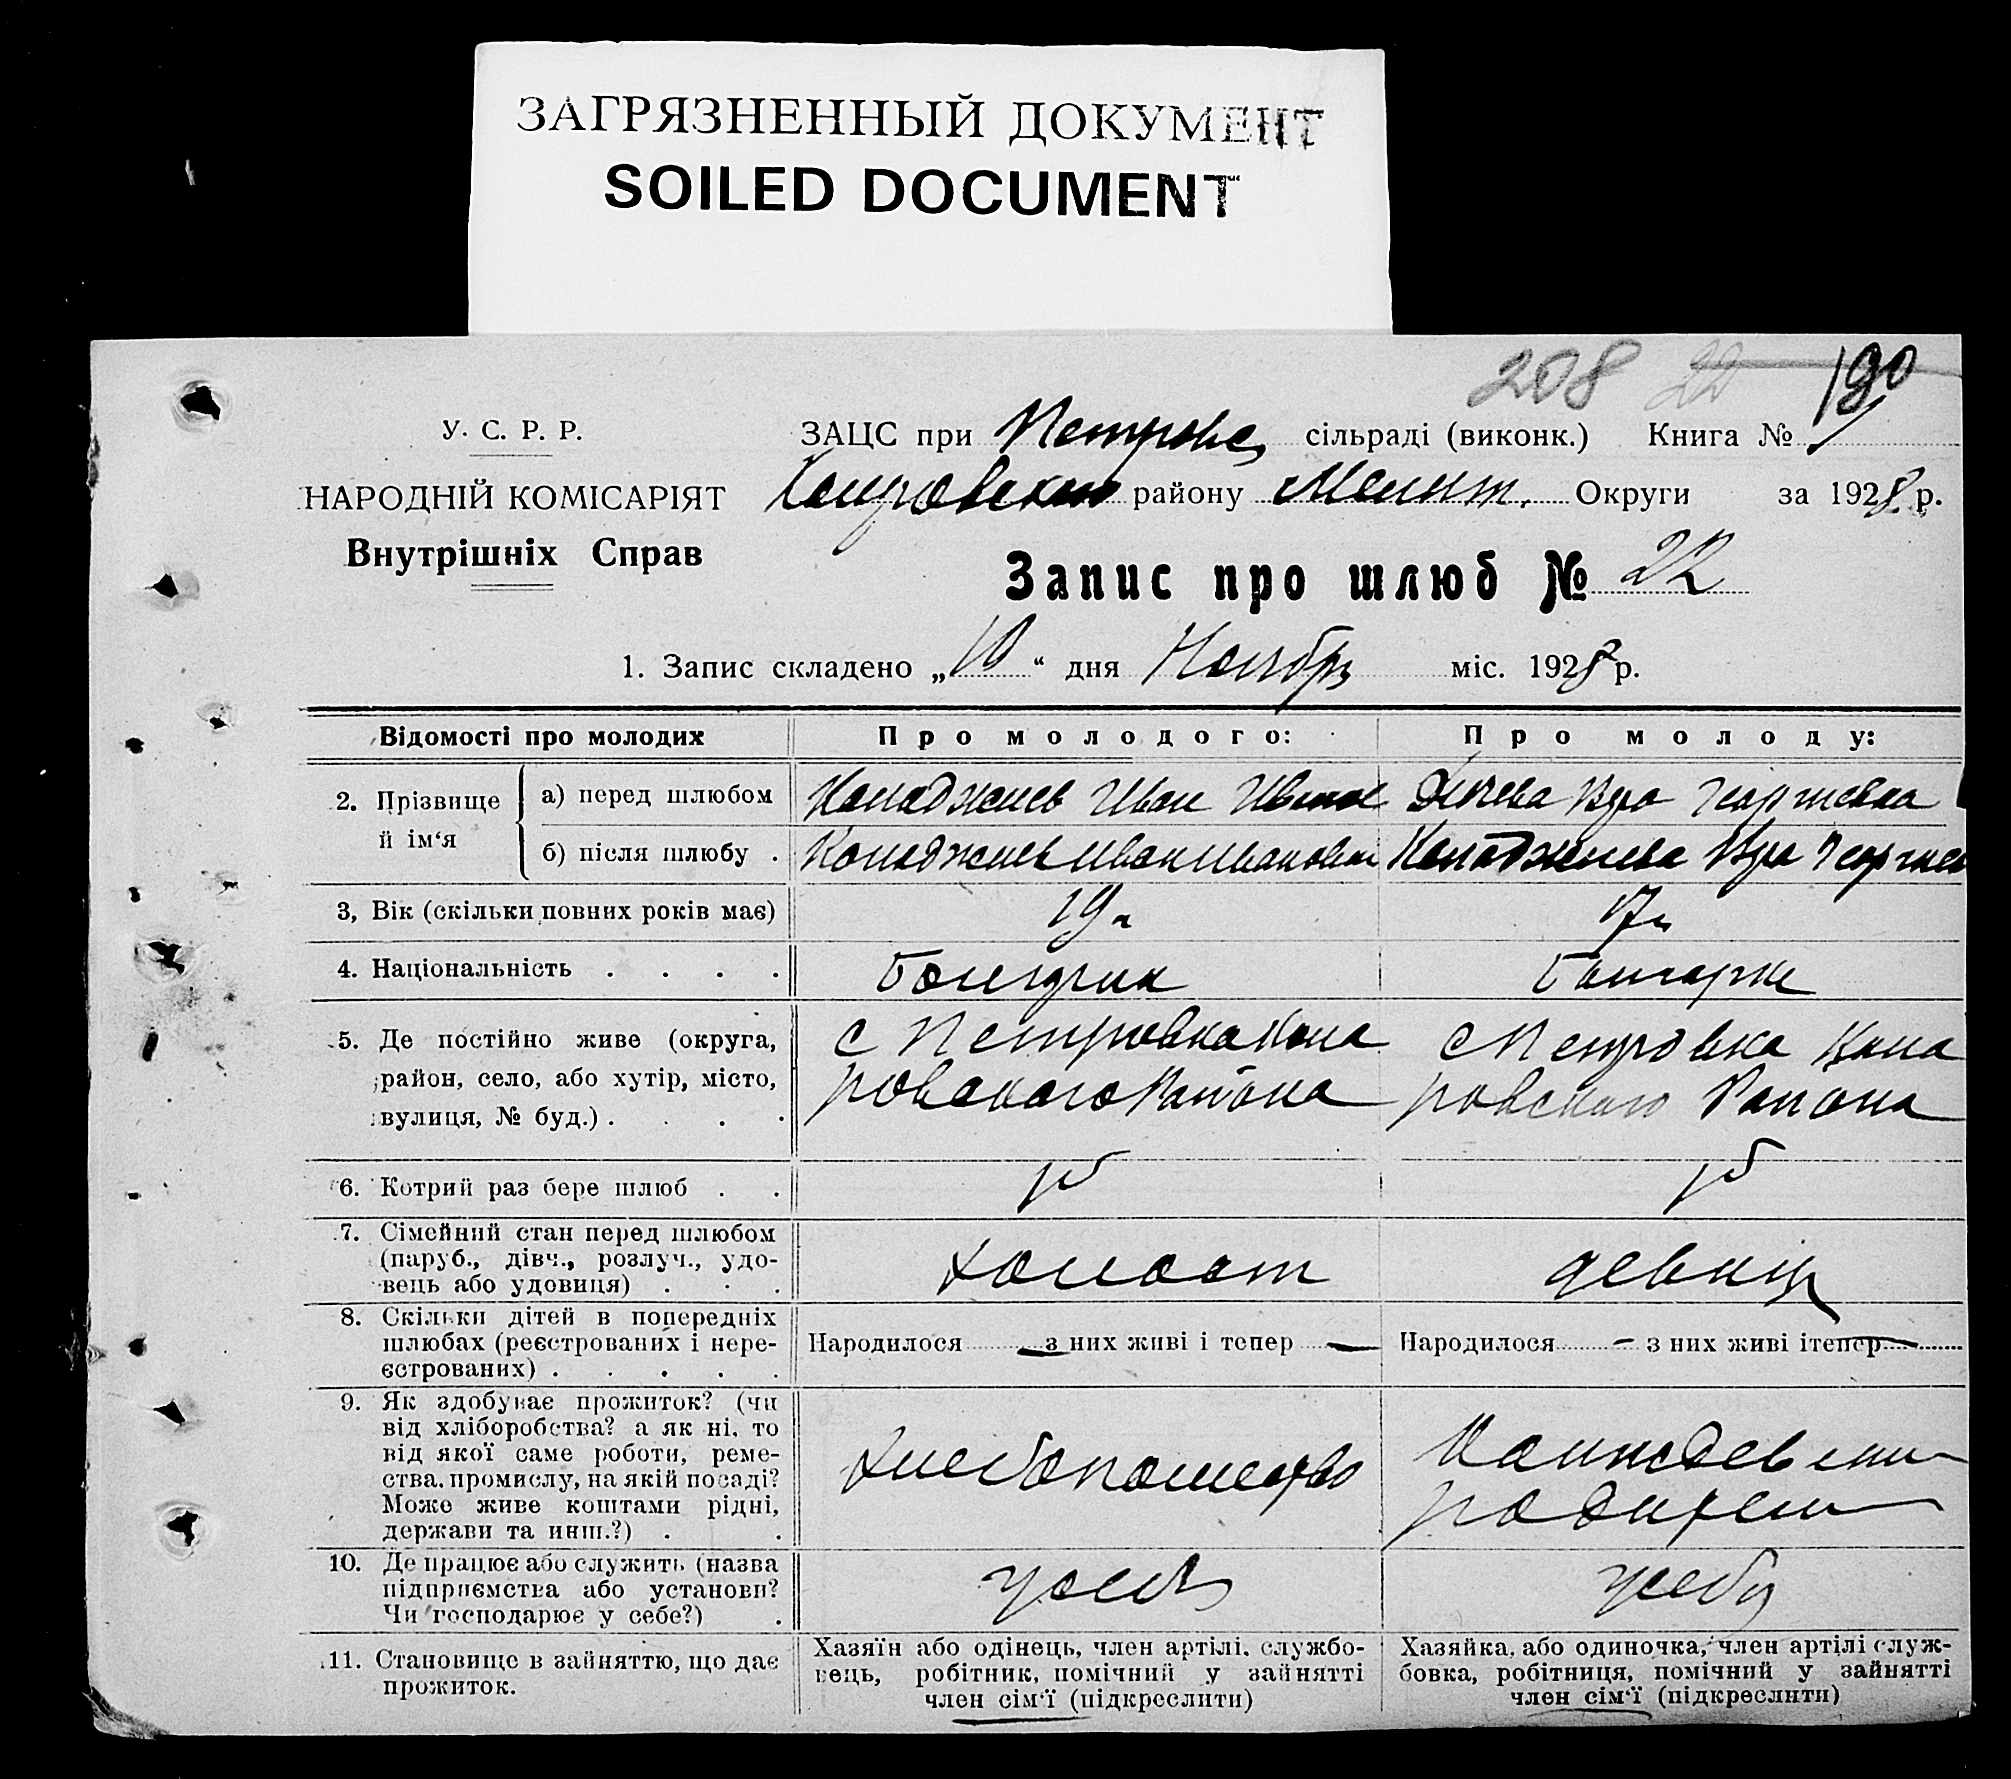 ЗАГРЯЗНЕННЫЙ ДОКУМЕНТ
SOILED DOCUMENT
208 22 190
У. С. Р. Р.
ЗАЦС при Петровс сільраді (виконк.) Книга № 1
НАРОДНІЙ КОМІСАРІЯТ
району Мелит. Округи за 1928 р.
Внутрішніх Справ
Запис про шлюб № 22
1. Запис складено „10“ дня Ноябрь міс. 1928 р.
Відомості про молодих
Про молодого:
Про молоду:
2. Прізвище й ім‘я
а) перед шлюбом
Иван Георгиевна
б) після шлюбу .
Иван Иванович
3, Вік (скільки повних років має)
19 л
17 л
4. Національність . . . .
Болгарин
Болгарка
5. Де постійно живе (округа,
район, село, або хутір, місто,
вулиця, № буд.) . . . .
с Петровка Кола
ровского Района
с Петровка Кола
ровского Района
6. Котрий раз бере шлюб . .
7. Сімейний стан перед шлюбом
(паруб., дівч., розлуч., удо-
вець або удовиця) . . .
холост
девица
8. Скільки дітей в попередніх
шлюбах (реєстрованих і нере-
єстрованих) . . . . .
Народилося — з них живі і тепер —
Народилося — з них живі і тепер —
9. Як здобуває прожиток? (чи
від хліборобства? а як ні, то
від якої саме роботи, реме-
ства, промислу, на якій посаді?
Може живе коштами рідні,
держави та инш.?) . .
хлебопашество
родител
10. Де працює або служить (назва
підприємства або установи?
Чи господарює у себе?) .
у себя
у себя
11. Становище в зайняттю, що дає
прожиток.
Хазяїн або одінець, член артілі, службо-
вець, робітник, помічний у зайнятті
член сім‘ї (підкреслити)
Хазяйка, або одиночка, член артілі служ-
бовка, робітниця, помічний у зайнятті
член сім‘ї (підкреслити)